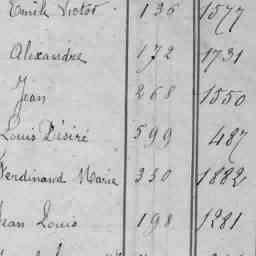 Emile Victor. 136 1577
Alexandre 172 1731
Jean 268 1550
Louis Désiré 599 487
Ferdinand Marie 350 1882
Jean Louis 198 1281